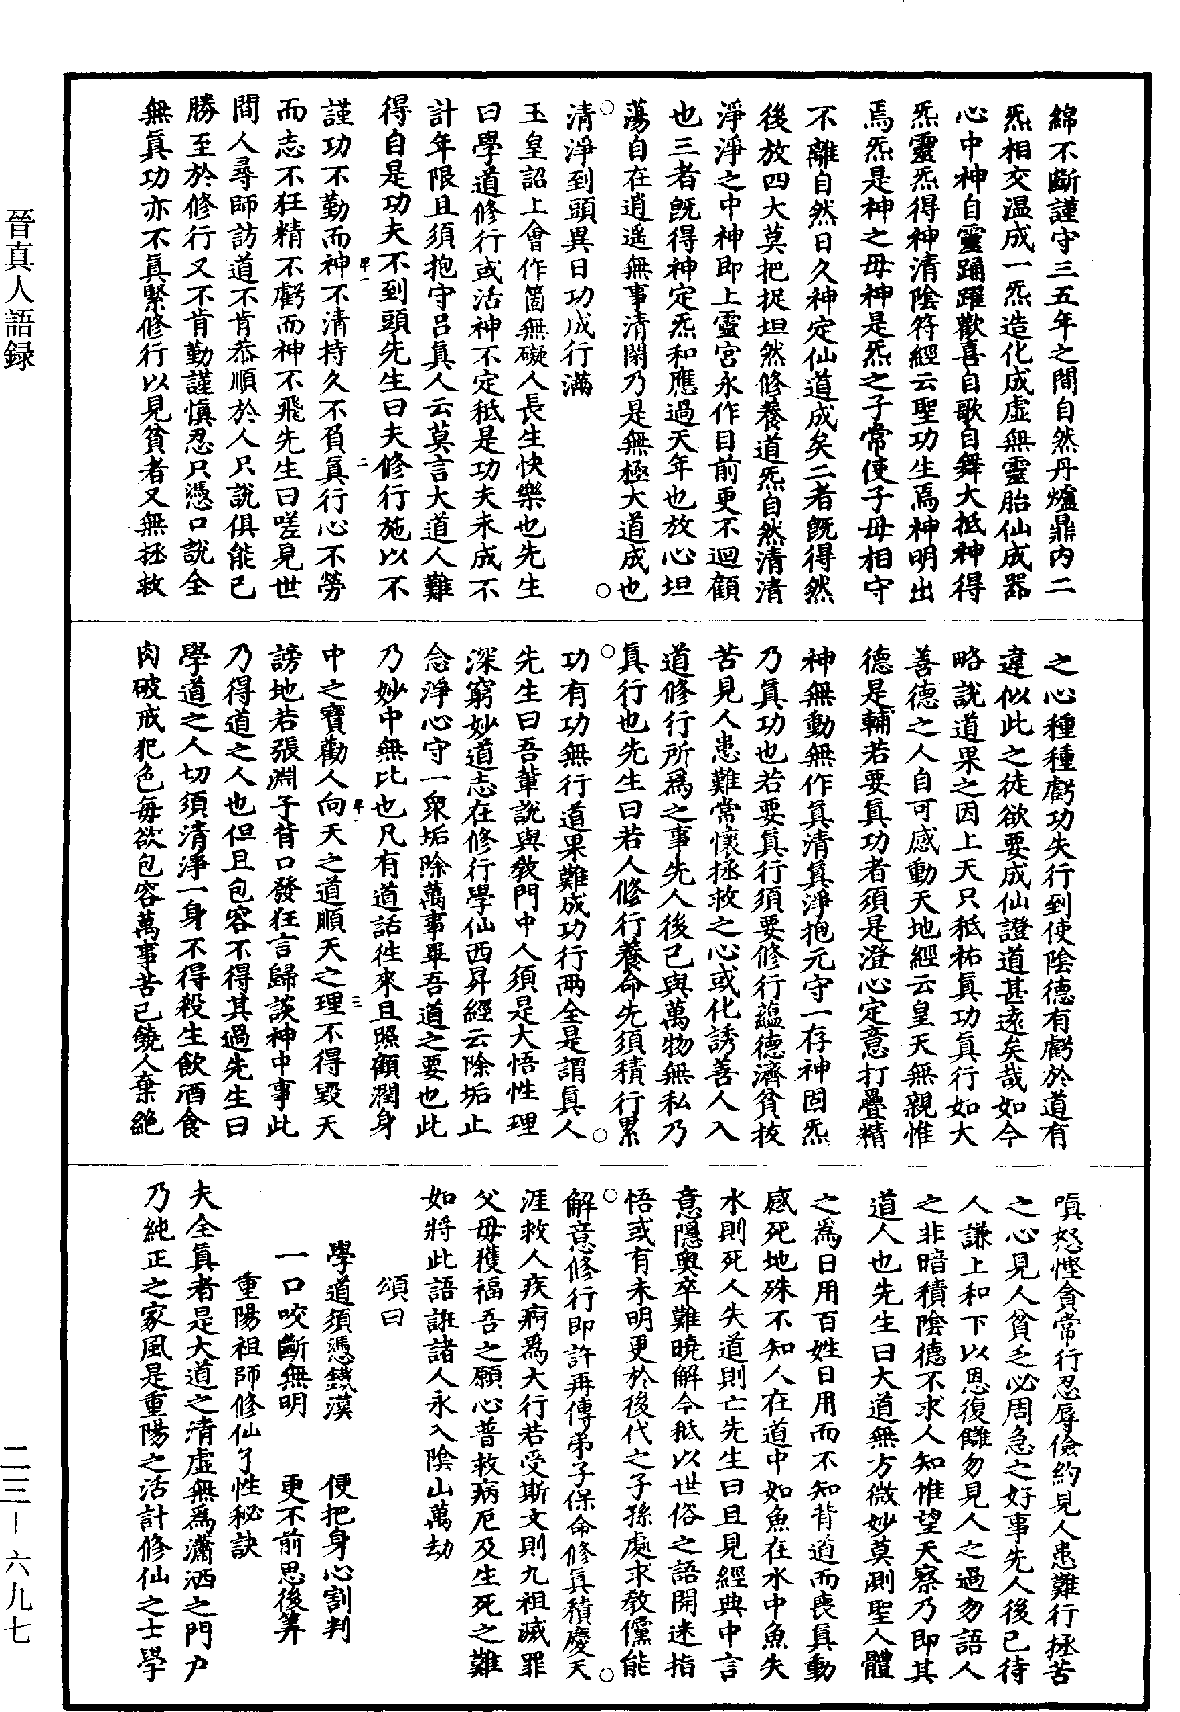 綿不斷謹守三五年之間自然丹爐鼎內二
炁相交温成一炁造化成虛無靈胎仙成器
心中神自靈踊躍歡喜自歌自舞大抵神得
炁靈炁得神清陰符經云聖功生焉神明出
焉炁是神之母神是炁之子常使子母相守
不離自然日久神定仙道成矣二者旣得然
後放四大莫把捉坦然修養道炁自然清清
淨淨之中神即上靈宮永作目前更不迴顧
也三者旣得神定炁和應過天年也放心坦
蕩自在逍遥無事清閑乃是無極大道成也
清淨到頭異日功成行滿
玉皇詔上會作箇無礙人長生快樂也先生
曰學道修行或活神不定秪是功夫未成不
計年限且須抱守吕真人云莫言大道人難
得自是功夫不到頭先生曰夫修行施以不
謹功不勤而神不清持久不負真行心不勞
而志不狂精不虧而神不飛先生曰嗟見世
間人尋師訪道不肯恭順於人只說俱能已
勝至於修行又不肯勤謹慎忍只憑口說全
無真功亦不真緊修行以見貧者又無拯救
之心種種虧功失行到使陰德有虧於道有
違似此之徒欲要成仙證道甚遠矣哉如今
略說道果之因上天只秪祐真功真行如大
善德之人自可感動天地經云皇天無親惟
德是輔若要真功者須是澄心定意打疊精
神無動無作真清真淨抱元守一存神固炁
乃真功也若要真行須要修行藴德濟貧拔
苦見人患難常懷拯救之心或化誘善人入
道修行所為之事先人後己與萬物無私乃
真行也先生曰若人修行養命先須積行累
功有功無行道果難成功行兩全是謂真人
先生曰吾輩說與教門中人須是大悟性理
深窮妙道志在修行學仙西昇經云除垢止
念淨心守一衆垢除萬事畢吾道之要也此
乃妙中無比也凡有道話往來且照顧潤身
中之寶勸人向天之道順天之理不得毀天
謗地若張淵子肯口發狂言歸談神中事此
乃得道之人也但且包容不得其過先生曰
學道之人切須清淨一身不得殺生飲酒食
肉破戒犯色每欲包容萬事苦己饒人棄絶
嗔怒慳貪常行忍辱儉約見人患難行拯苦
之心見人貧乏必周急之好事先人後已待
人謙上和下以恩復讎勿見人之過勿語人
之非暗積陰德不求人知惟望天察乃即其
道人也先生曰大道無方微妙莫測聖人體
之為日用百姓日用而不知背道而喪真動
感死地殊不知人在道中如魚在水中魚失
水則死人失道則亡先生曰且見經典中言
意隱奧卒難曉解今秪以世俗之語開迷指
悟或有未明更於後代之子孫處求教儻能
解意修行即許再傳弟子保命修真積慶天
涯救人疾病為大行若受斯文則九祖滅罪
父母獲福吾之願心普救病厄及生死之難
如將此語誑諸人永入陰山萬劫
頌曰
學道須憑鐵漢　便把身心割判
一口咬斷無明　更不前思後筭
重陽祖師修仙了性秘訣
夫全真者是大道之清虛無為瀟洒之門户
乃純正之家風是重陽之活計修仙之士學
晉真人語録
二三－六九七